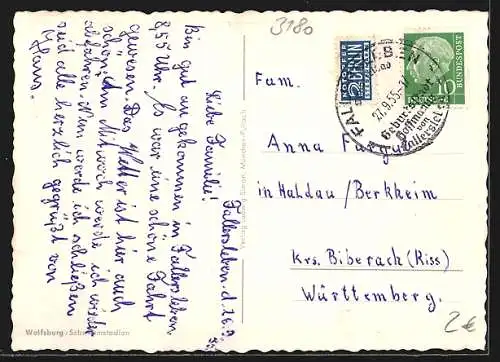 3180
Fallersleben, d. 26.9.
Liebe Familie!
Bin gut angekommen in Fallersleben
8,55 Uhr. Es war eine schöne Fahrt
gewesen. Das Wetter ist hier auch
schön. Am Mittwoch werde ich wieder
abfahren. Nun werde ich schließen
seid alle herzlich gegrüßt von
Hans.
Wolfsburg
NOTOPFER
2 BERLIN
STEUERMARKE
DEUTSCHE
BUNDESPOST
10
27.9.55
Geburtsort
Hoffmann
Fallersleben
Fam.
Anna
in Haldau/Berkheim
Krs. Biberach (Riss)
Württemberg.
2€